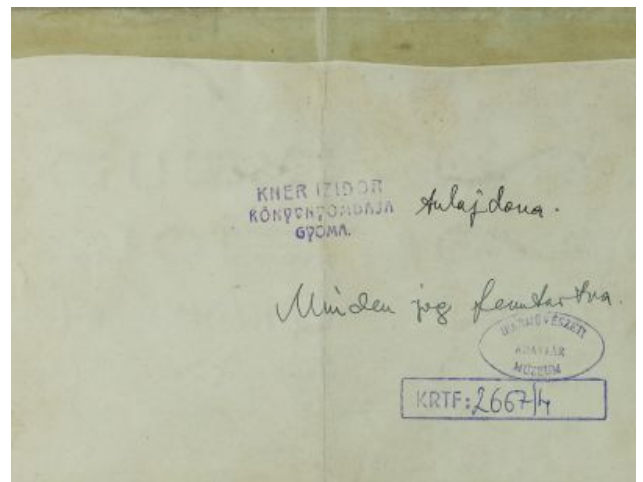 KNER IZIDOR
KÖNYVNYOMDAJA
GYOMA.
tulajdona.
Minden jog fenntartva.
IPARMŰVÉSZETI
ADATTÁR
MÚZEUM
KRTF: 2667/4